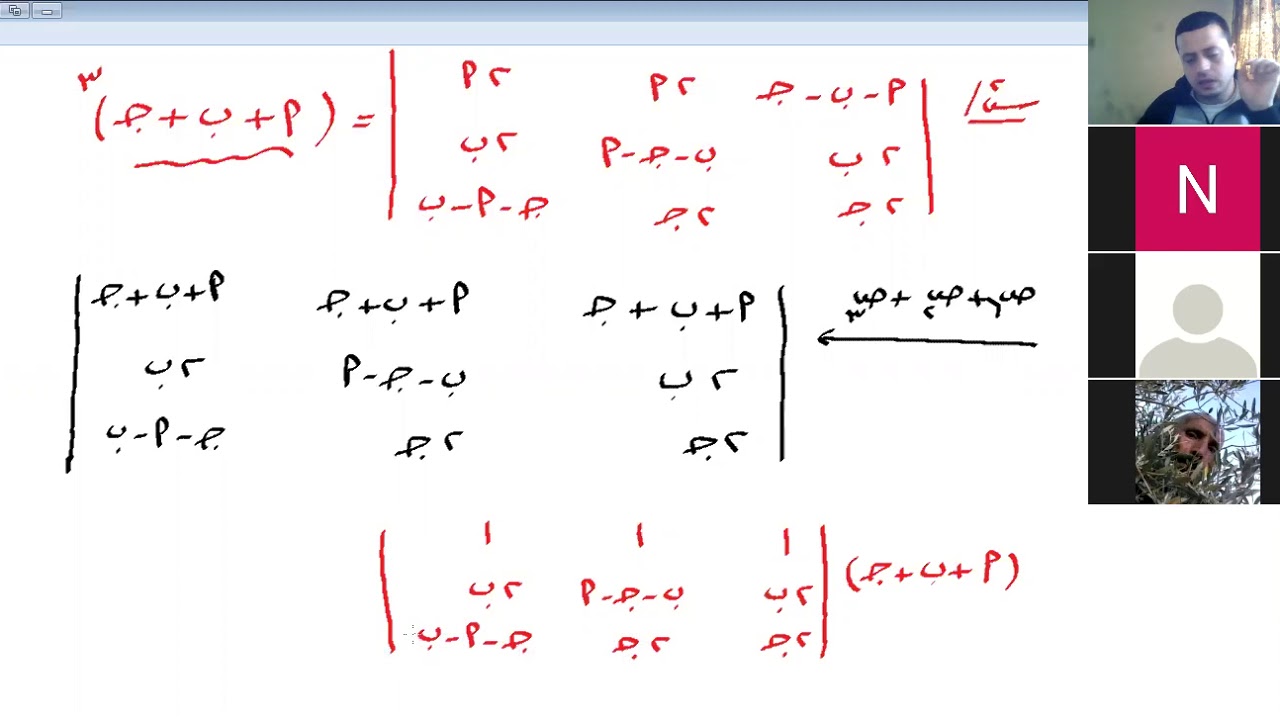 س٢/ | أ - ب - جـ   ٢أ   ٢أ | = (أ + ب + جـ)٣
٢ب   ب - جـ - أ   ٢ب
٢جـ   ٢جـ   جـ - أ - ب
ص١ + ص٢ + ص٣
أ + ب + جـ   أ + ب + جـ   أ + ب + جـ
٢ب   ب - جـ - أ   ٢ب
٢جـ   ٢جـ   جـ - أ - ب
(أ + ب + جـ) | ١   ١   ١ |
٢ب   ب - جـ - أ   ٢ب
٢جـ   ٢جـ   جـ - أ - ب
N